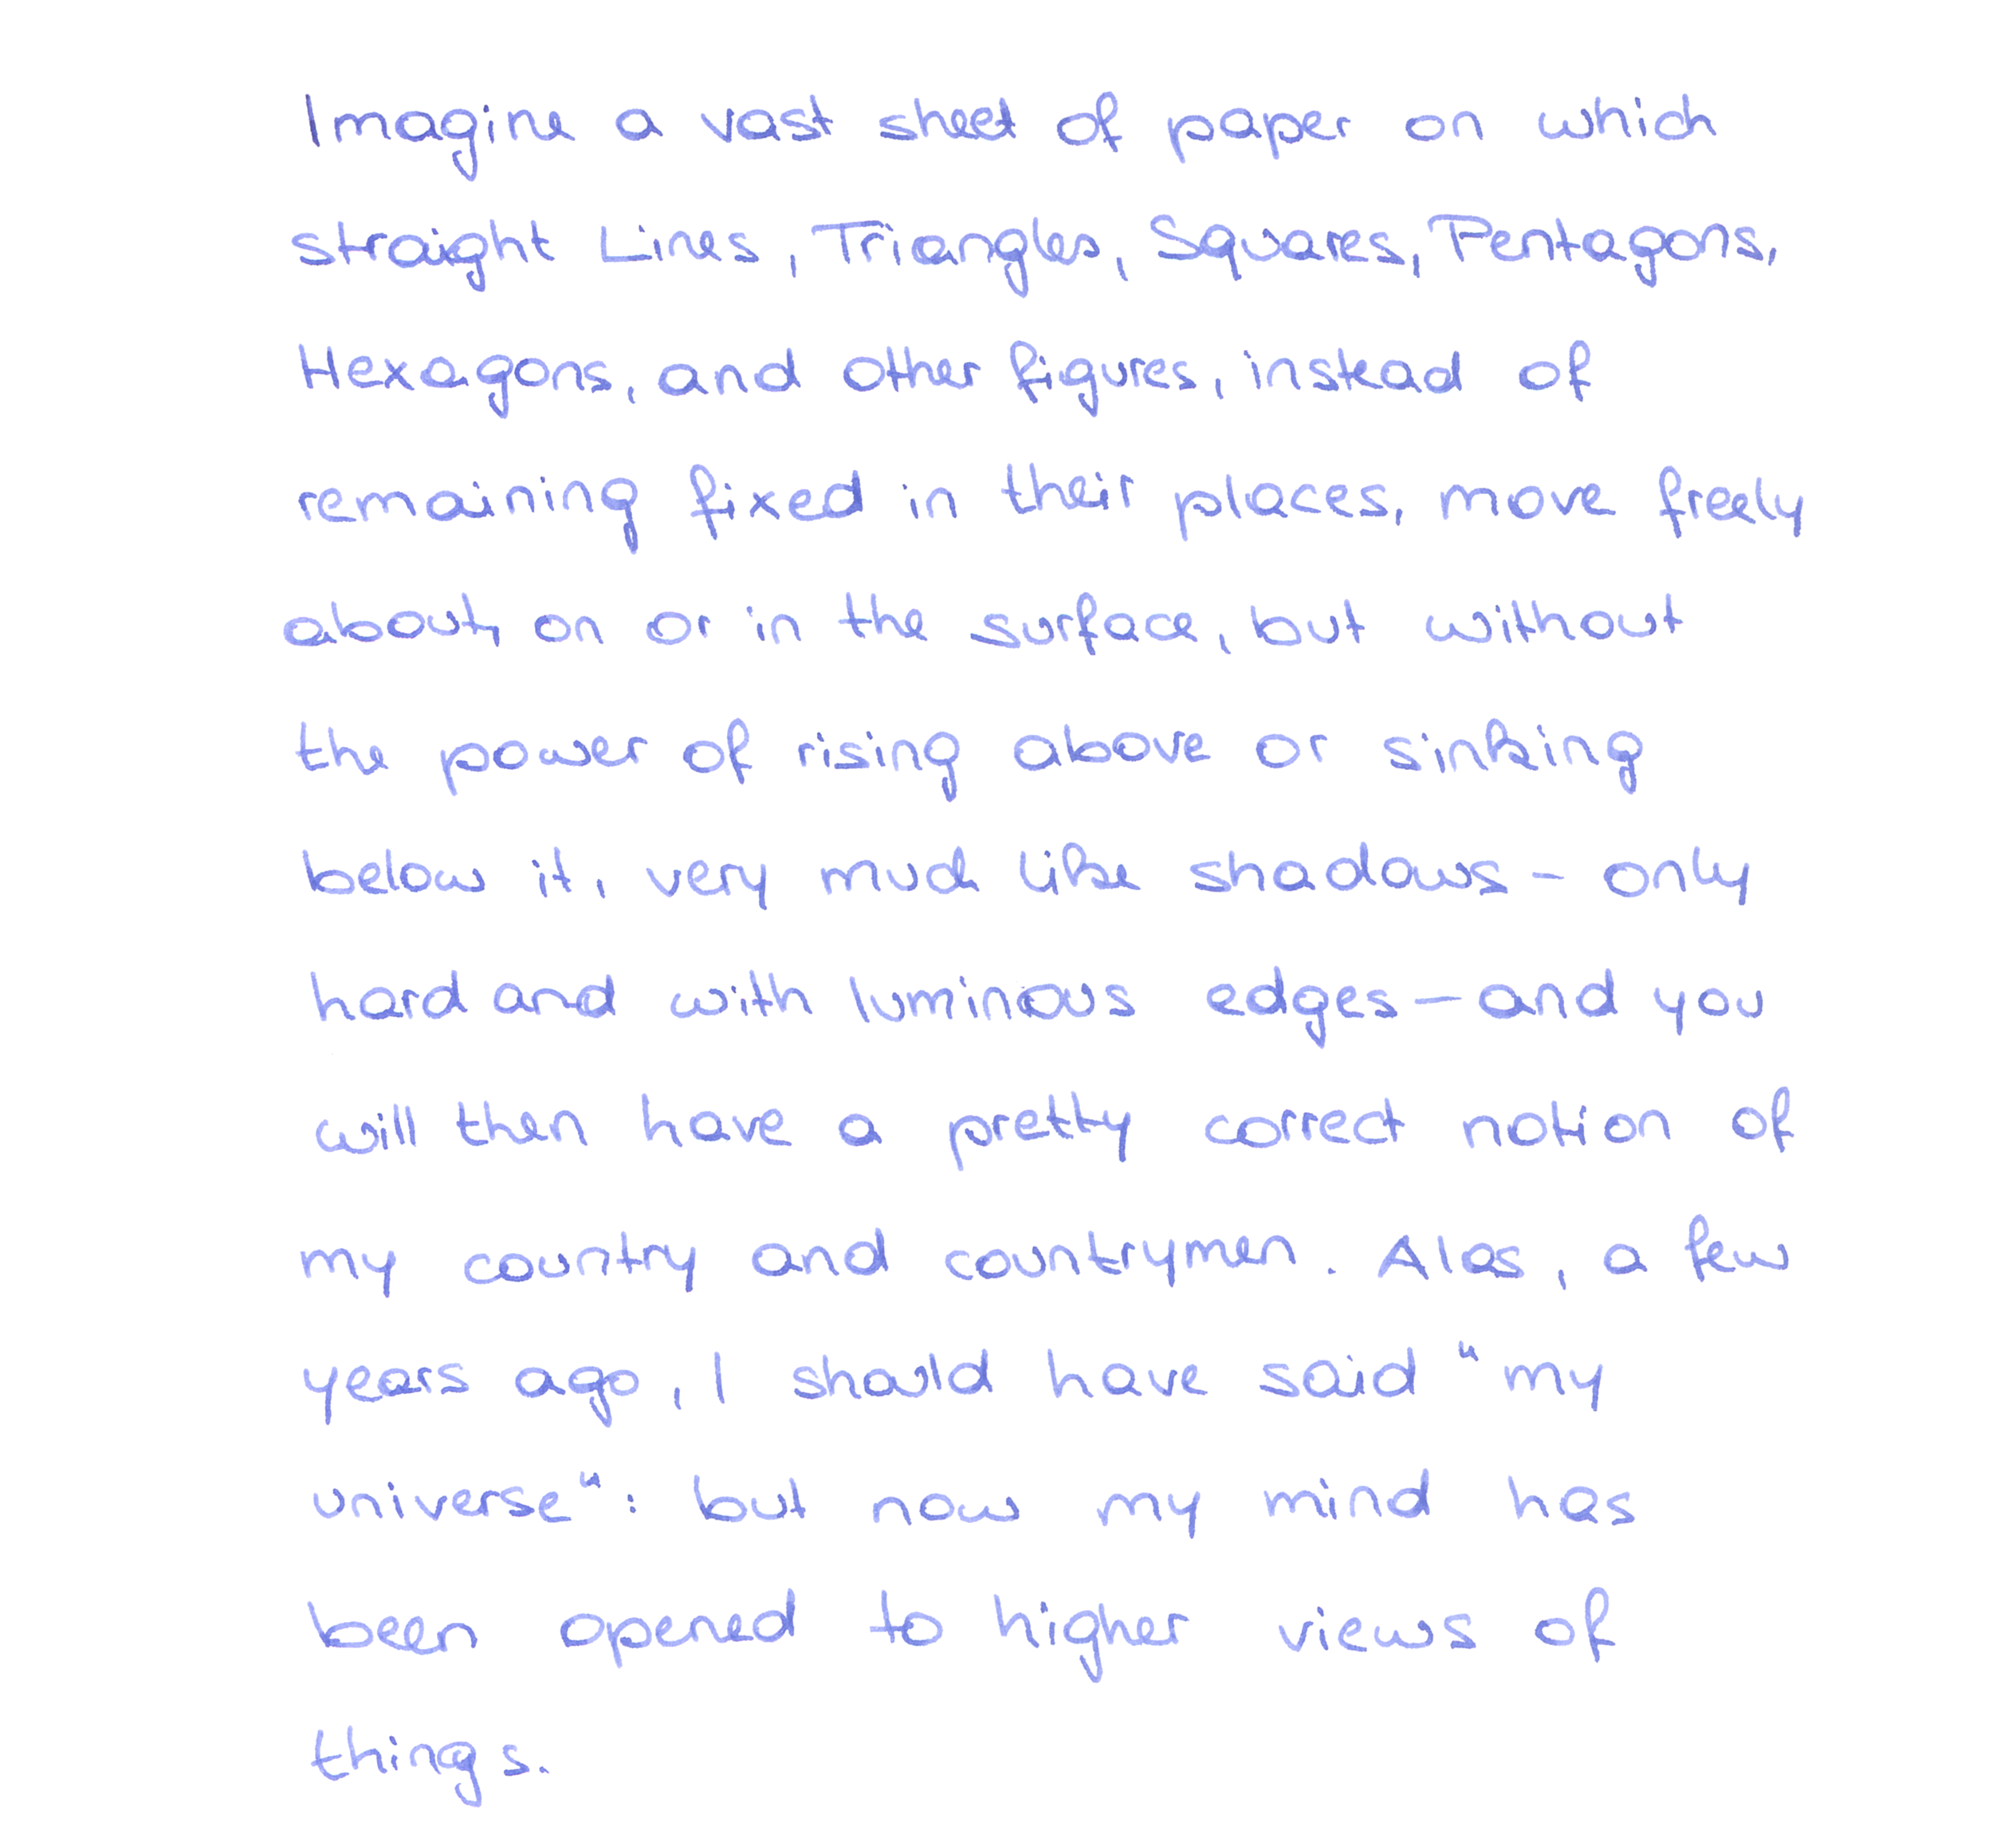 Imagine a vast sheet of paper on which
straight Lines, Triangles, Squares, Pentagons,
Hexagons, and other figures, instead of
remaining fixed in their places, move freely
about, on or in the surface, but without
the power of rising above or sinking
below it, very much like shadows - only
hard and with luminous edges — and you
will then have a pretty correct notion of
my country and countrymen. Alas, a few
years ago, I should have said "my
universe": but now my mind has
been opened to higher views of
things.